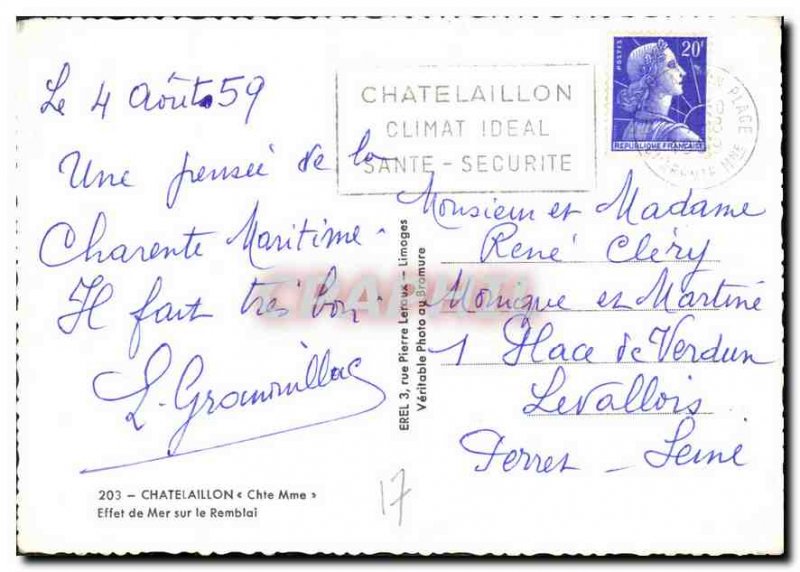 Le 4 Août 59
Une pensée de la
Charente Maritime.
Il fait très bon.
203 - CHATELAILLON « Chte Mme »
Effet de Mer sur le Remblai
17
CHATELAILLON
CLIMAT IDEAL
SANTE - SECURITE
POSTES
20F
REPUBLIQUE FRANCAISE
PLAGE
EREL 3, rue Pierre Leroux - Limoges
Véritable Photo au Bromure
Monsieur et Madame
René Cléry
Monique et Martine
1 Place de Verdun
Levallois
Perret - Seine